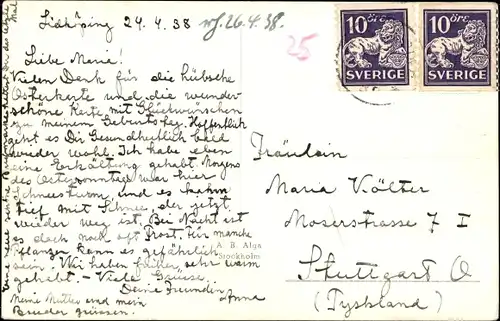 Lidköping 24.4.38
26.4.38.
25
Liebe Maria!
Vielen Dank für die hübsche
Osterkarte und die wunder-
schöne Karte mit Glückwünschen
zu meinem Geburtstag. Hoffentlich
geht es Dir Gesundheitlich bald
wieder wohl. Ich habe eben
eine Erkältung gehabt. Morgens
des Ostersonntags war hier
Schneesturm, und es kam
tief mit Schnee, der jetzt
wieder weg ist. Bei Nacht ist
es doch noch oft Frost. Für manche
Pflanzen kann es gefährlich
sein. Wir haben früher sehr warm
gehabt. - Viele Grüsse.
Deine Freundin
Anna
Meine Mutter und mein
Bruder grüssen.
A. B. Alga
Stockholm
10 ÖRE
SVERIGE
10 ÖRE
SVERIGE
Fräulein
Maria Költer
Moserstrasse 7 I
Stuttgart O
(Tyskland)